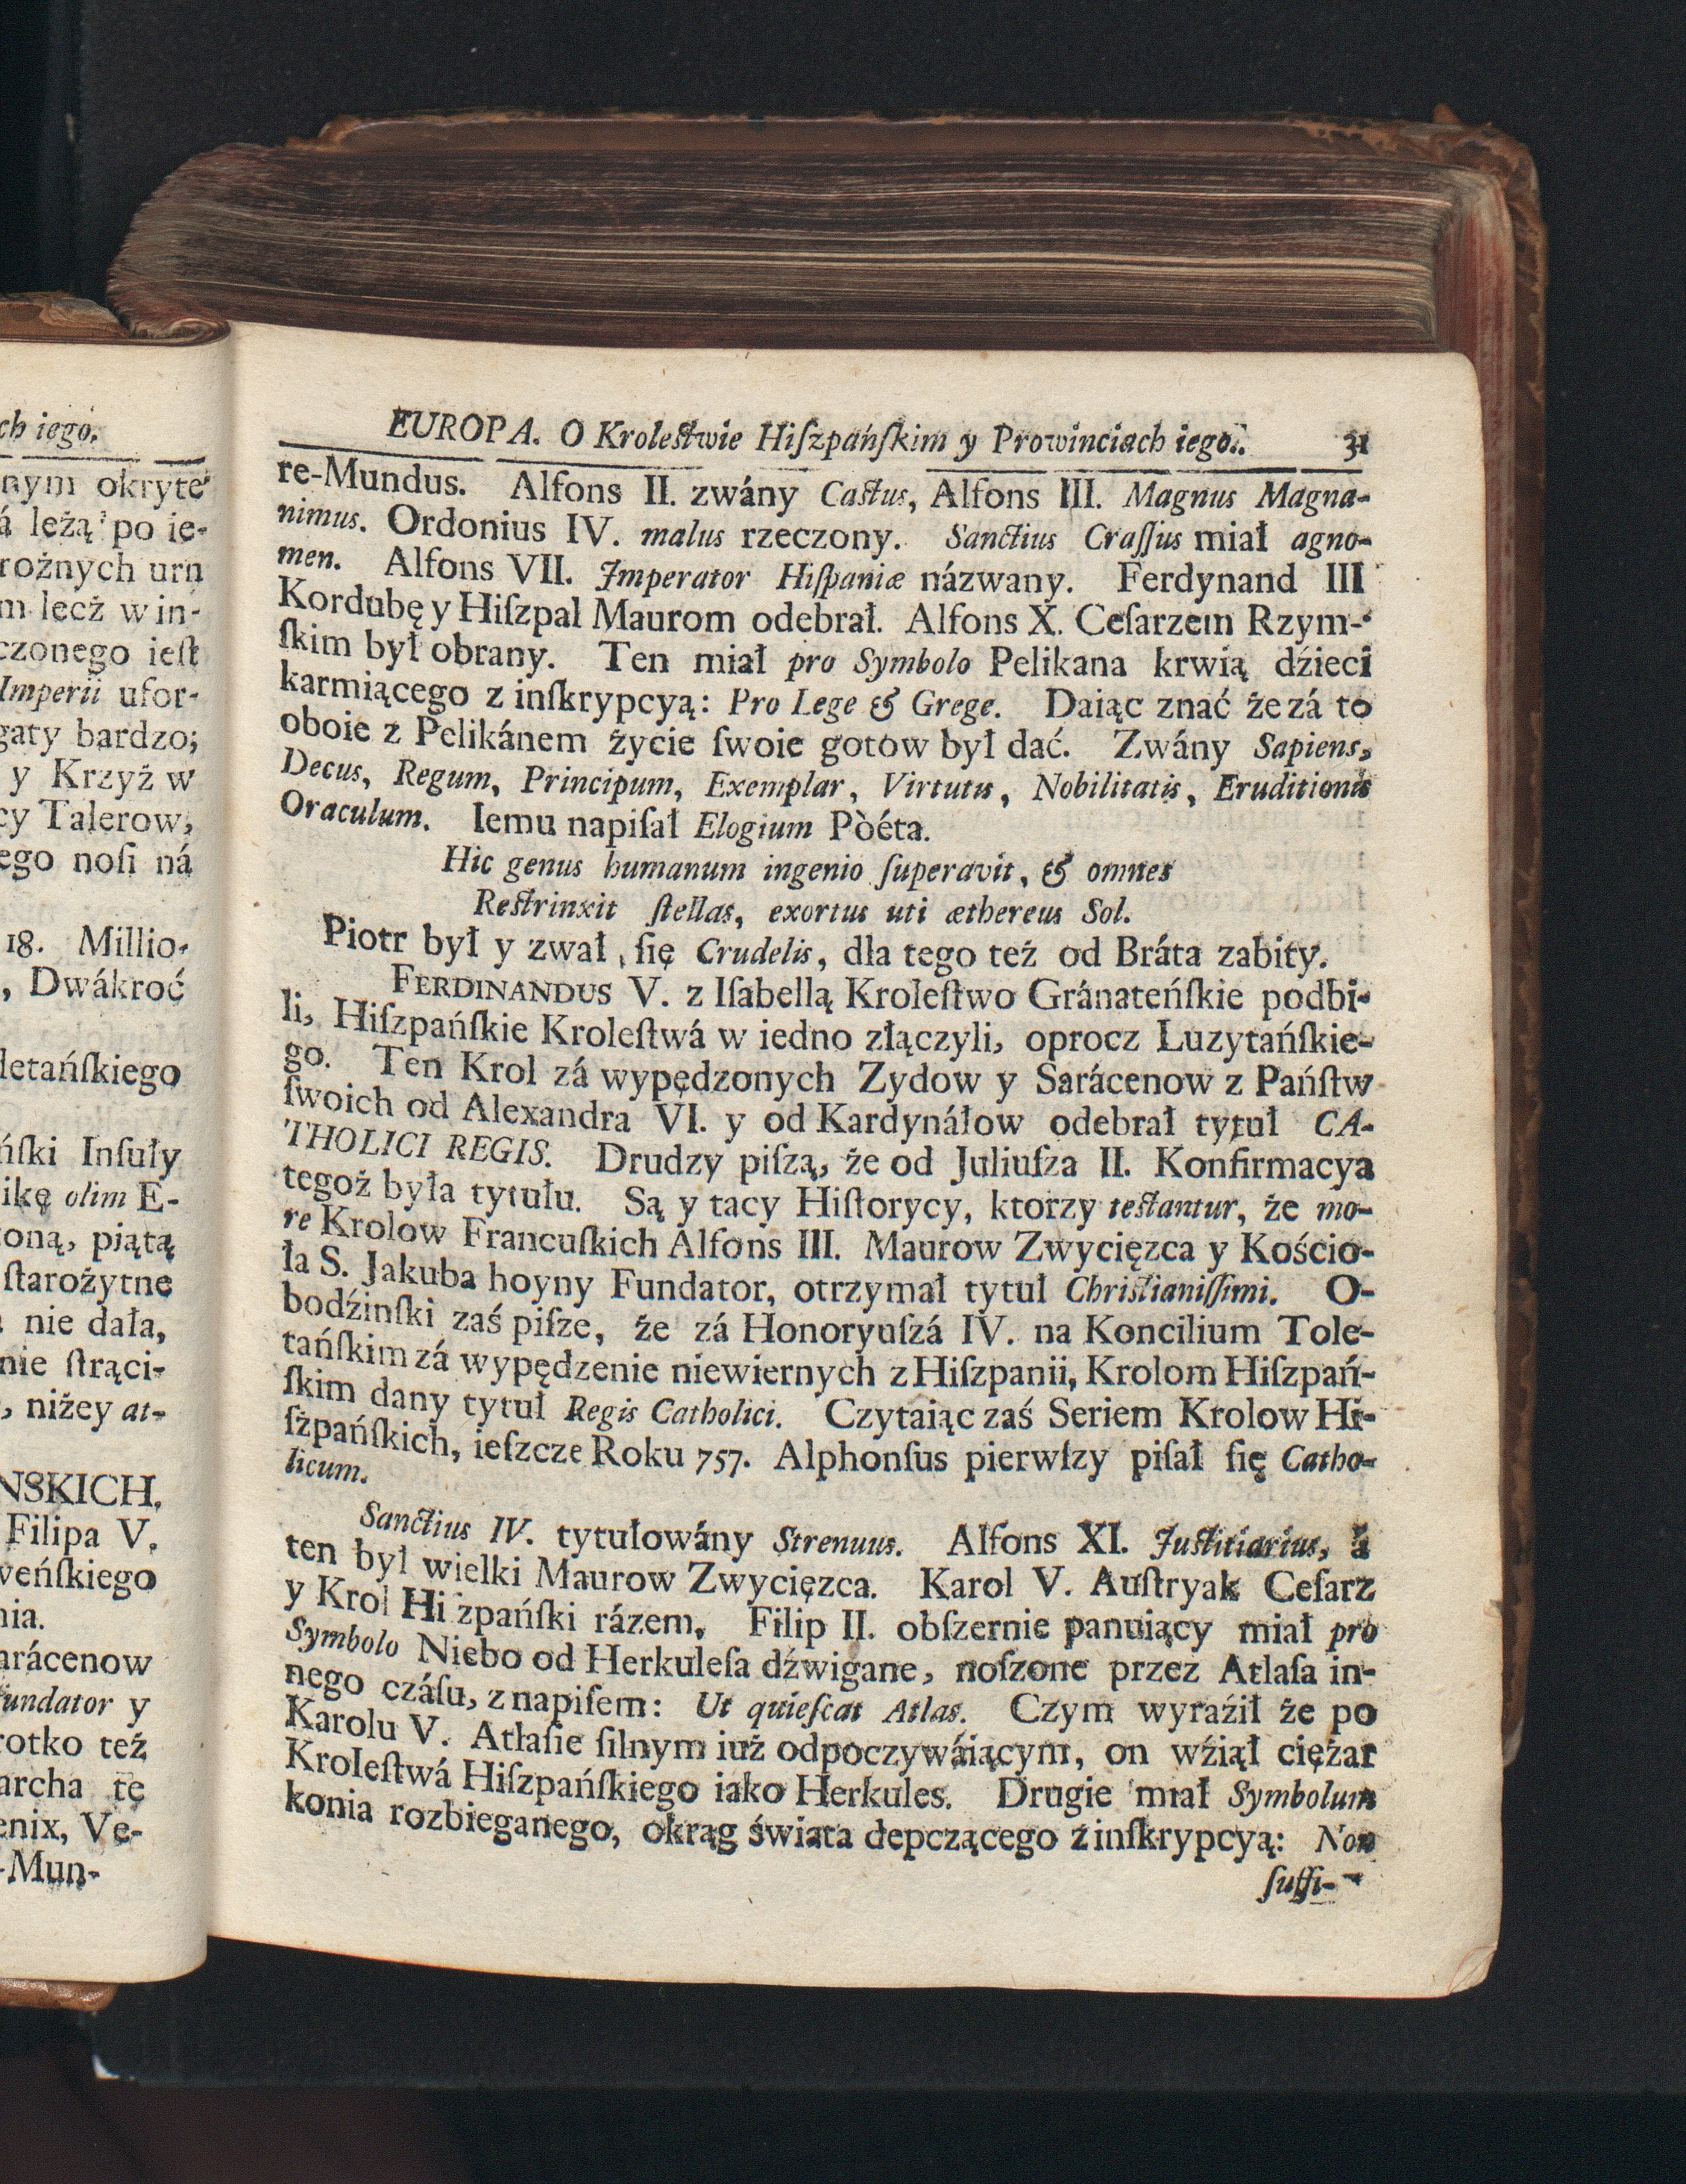 ch iego.
nym okryte
á leżą po ie-
rożnych urn
m lecż w in-
czonego ieſt
Imperii ufor-
gaty bardzo;
y Krzyż w
cy Talerow,
ego noſi ná
18. Millio-
, Dwákroć
letańſkiego
ńſki Inſuły
ikę olim E-
oną, piątą
ſtarożytne
nie dała,
nie ſtrąci-
, niżey at-
NSKICH.
Filipa V.
weńſkiego
nia.
arácenow
undator y
rotko też
archa tę
enix, Ve-
-Mun-
EUROPA. O Kroleſtwie Hiſzpańſkim y Prowinciach iego. 31
re-Mundus. Alfons II. zwány Caſtus, Alfons III. Magnus Magna-
nimus. Ordonius IV. malus rzeczony. Sanctius Craſſus miał agno-
men. Alfons VII. Jmperator Hiſpaniæ názwany. Ferdynand III
Kordubę y Hiſzpal Maurom odebrał. Alfons X. Ceſarzem Rzym-
ſkim był obrany. Ten miał pro Symbolo Pelikana krwią dźieci
karmiącego z inſkrypcyą: Pro Lege & Grege. Daiąc znać że zá to
oboie z Pelikánem życie ſwoie gotow był dać. Zwány Sapiens,
Decus, Regum, Principum, Exemplar, Virtutis, Nobilitatis, Eruditionis
Oraculum. Iemu napiſał Elogium Pòéta.
Hic genus humanum ingenio ſuperavit, & omnes
Reſtrinxit ſtellas, exortus uti æthereus Sol.
Piotr był y zwał ſię Crudelis, dla tego też od Bráta zabity.
FERDINANDUS V. z Iſabellą Kroleſtwo Gránateńſkie podbi-
li, Hiſzpańſkie Kroleſtwá w iedno złączyli, oprocz Luzytańſkie-
go. Ten Krol zá wypędzonych Zydow y Sarácenow z Pańſtw
ſwoich od Alexandra VI. y od Kardynáłow odebrał tytuł CA-
THOLICI REGIS. Drudzy piſzą, że od Juliuſza II. Konfirmacya
tegoż była tytułu. Są y tacy Hiſtorycy, ktorzy teſtantur, że mo-
re Krolow Francuſkich Alfons III. Maurow Zwycięzca y Kościo-
ła S. Jakuba hoyny Fundator, otrzymał tytuł Chriſtianiſſimi. O-
bodźinſki zaś piſze, że zá Honoryuſzá IV. na Koncilium Tole-
tańſkim zá wypędzenie niewiernych z Hiſzpanii, Krolom Hiſzpań-
ſkim dany tytuł Regis Catholici. Czytaiąc zaś Seriem Krolow Hi-
ſżpańſkich, ieſzcze Roku 757. Alphonſus pierwſzy piſał ſię Catho-
licum.
Sanctius IV. tytułowány Strenuus. Alfons XI. Juſtitiarius, á
ten był wielki Maurow Zwycięzca. Karol V. Auſtryak Ceſarz
y Krol Hi zpańſki rázem. Filip II. obſzernie panuiący miał pro
Symbolo Niebo od Herkuleſa dźwigane, noſzone przez Atlaſa in-
nego czáſu, z napiſem: Ut quieſcat Atlas. Czym wyraźił że po
Karolu V. Atlaſie ſilnym iuż odpoczywáiącym, on wźiął ciężar
Kroleſtwá Hiſzpańſkiego iako Herkules. Drugie miał Symbolum
konia rozbieganego, okrąg świata depczącego z inſkrypcyą: Non
ſuffi-